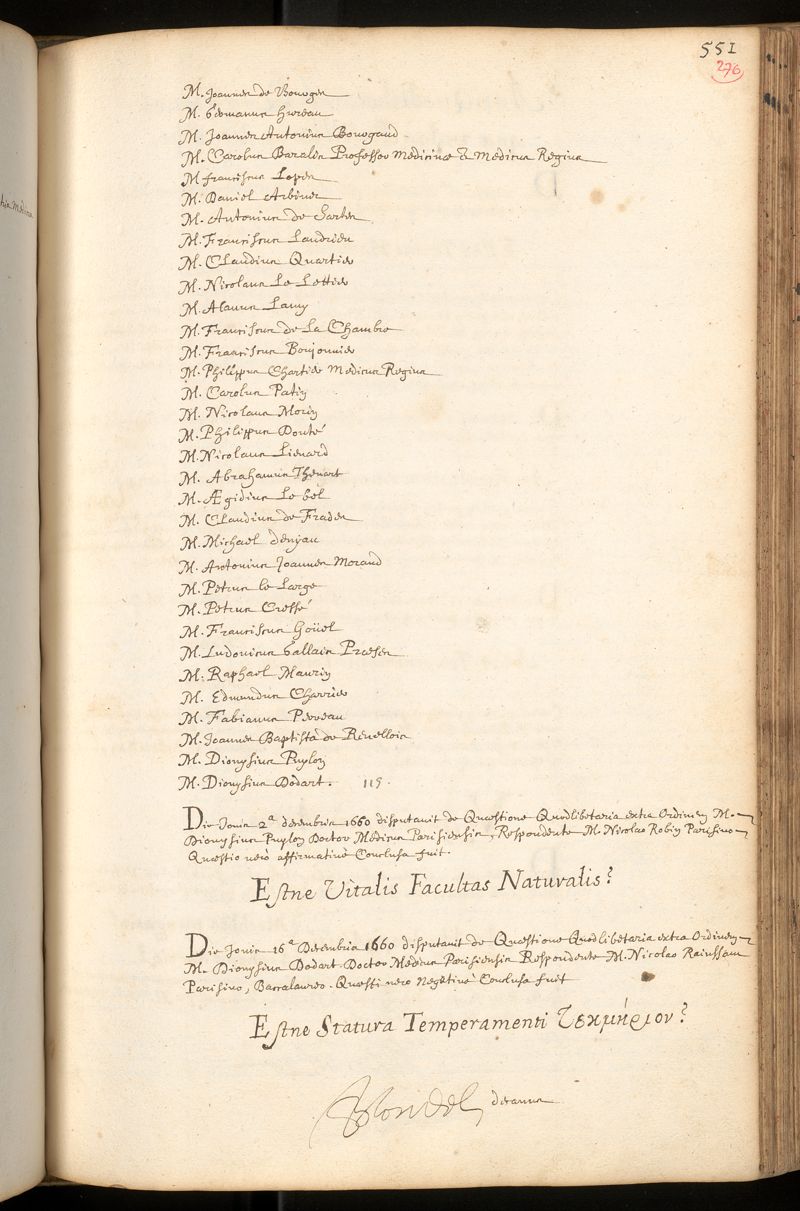 551
276
M. Joannes de Bourges
M. Germanus Hureau
M. Joannes Antonius Bourgaud
M. Carolus Baralis Professor Medicinæ & Medicus Regius
M franciscus Lopes
M. Daniel Arbinet
M. Antonius de Sarte
M. Franciscus Landrieu
M. Claudius Quartier
M. Nicolaus Le Lettier
M. Alanus Lamy
M. Franciscus de La Chambre
M. Franciscus Boujonnier
M. Philippus Chartier Medicus Regius
M. Carolus Patin
M. Nicolaus Morin
M. Philippus Douté
M. Nicolaus Lienard
M. Abrahamus Thevart
M. Ægidius Le bel
M. Claudius de Frades
M. Michael denyau
M. Antonius Joannes Morand
M. Petrus le Large
M. Petrus Cressé
M. Franciscus Goüel
M. Ludovicus Gallais Præses
M. Raphael Maurin
M. Edmundus Charrier
M. Fabianus Perreau
M. Joannes Baptista de Revellois
M. Dionysius Puylon
M. Dionysius Dodart. 115.
Die Jovis 2ª decembris 1660 disputavit de Quæstione Quodlibetaria extra Ordinem M.
Dionysius Puylon Doctor Medicus Parisiensis, Respondente M. Nicolao Robin Parisino
Quæstio verò affirmativè Conclusa fuit.
Estne Vitalis Facultas Naturalis?
Die Jovis 16ª Decembris 1660 disputavit de Quæstione Quodlibetaria extra Ordinem
M. Dionysius Dodart Doctor Medicus Parisiensis Respondente M. Nicolao Rainssant
Parisino, Baccalaureo. Quæsti vero Negative Conclusa fuit
Estne Statura Temperamenti τεκμήριον?
Blondel decanus